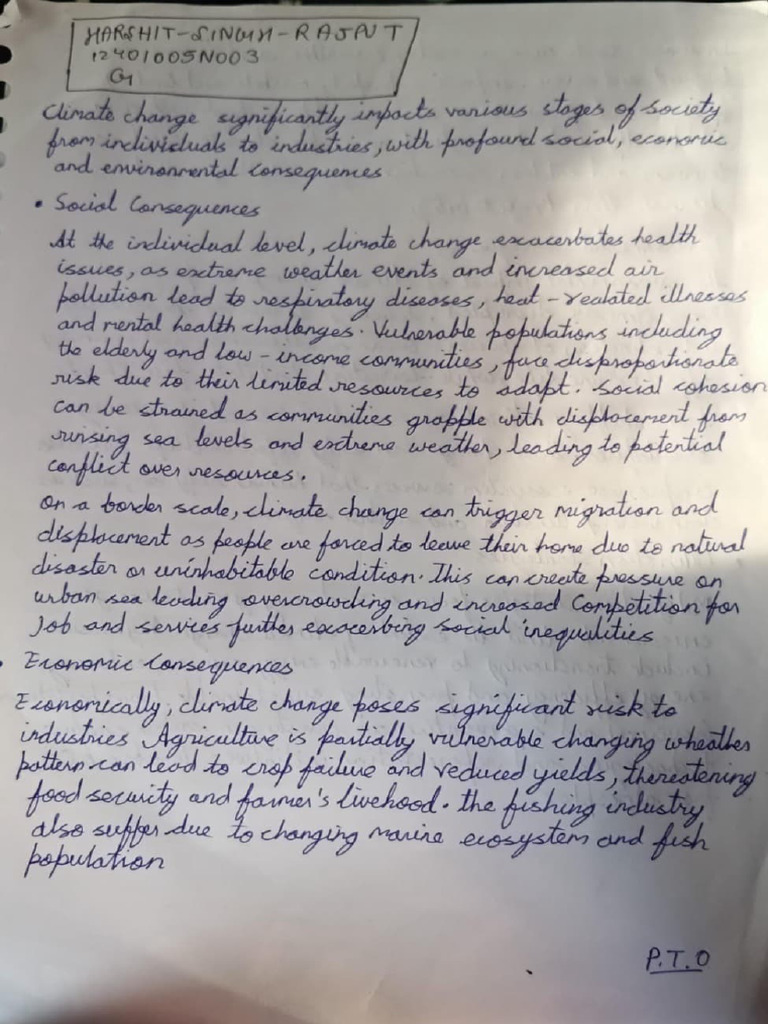 HARSHIT-SINGH-RAJPUT
12401005N003
G1
Climate change significantly impacts various stages of society
from individuals to industries, with profound social, economic
and environmental consequences
• Social Consequences
At the individual level, climate change exacerbates health
issues, as extreme weather events and increased air
pollution lead to respiratory diseases, heat-realated illnesses
and mental health challenges. Vulnerable populations including
the elderly and low-income communities, face disproportionate
risk due to their limited resources to adapt. Social cohesion
can be strained as communities grapple with displacement from
runising sea levels and extreme weather, leading to potential
conflict over resources.
On a border scale, climate change can trigger migration and
displacement as people are forced to leave their home due to natural
disaster or uninhabitable condition. This can create pressure on
urban sea leading overcrowding and increased Competition for
Job and services further exacerbing social inequalities
• Economic Consequences
Economically, climate change poses significant risk to
industries Agriculture is partially vulnerable changing wheather
pattern can lead to crop failure and reduced yields, thereatening
food security and farmer's livehood. the fishing industry
also suffer due to changing marine ecosystem and fish
population
P.T.O